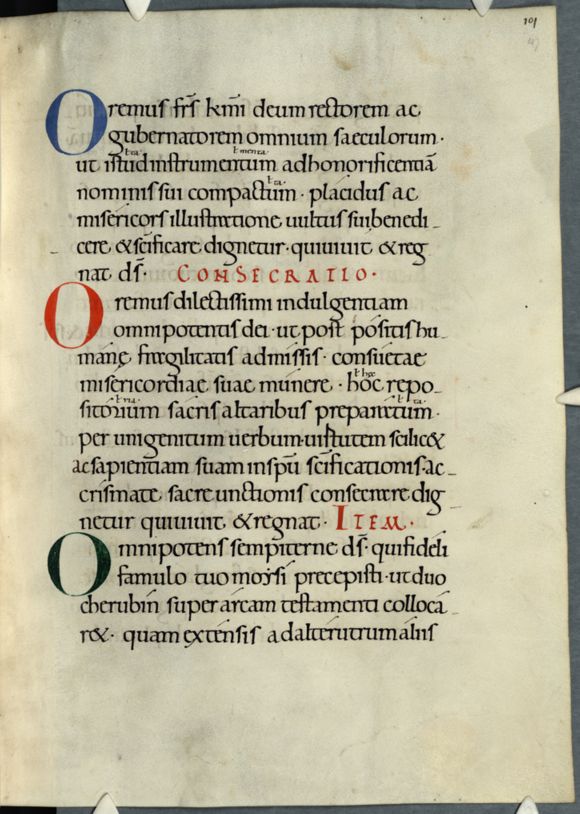 101
Oremus frs kmi deum rectorem ac
gubernatorem omnium saeculorum ·
ut istud instrumentum ad honorificentiā
nominis sui compactum · placidus ac
misericors illustratione uultus sui benedi-
cere & scificare dignetur · qui uiuit & reg
nat ds · CONSECRATIO ·
Oremus dilectissimi indulgentiam
omnipotentis dei · ut post positis hu
manę fragilitatis admissis · consuetae
misericordiae suae munere · hoc repo-
sitorium sacris altaribus preparatum ·
per unigenitum uerbum · uirtutem scilic&
ac sapientiam suam in spū scificationis · ac-
crismate sacre unctionis consecrare dig
netur qui uiuit & regnat · ITEM ·
Omnipotens sempiterne ds · qui fideli
famulo tuo moysi precepisti · ut duo
cherubin super arcam testamenti collocā-
r& · quam extensis ad alterutrum aliis